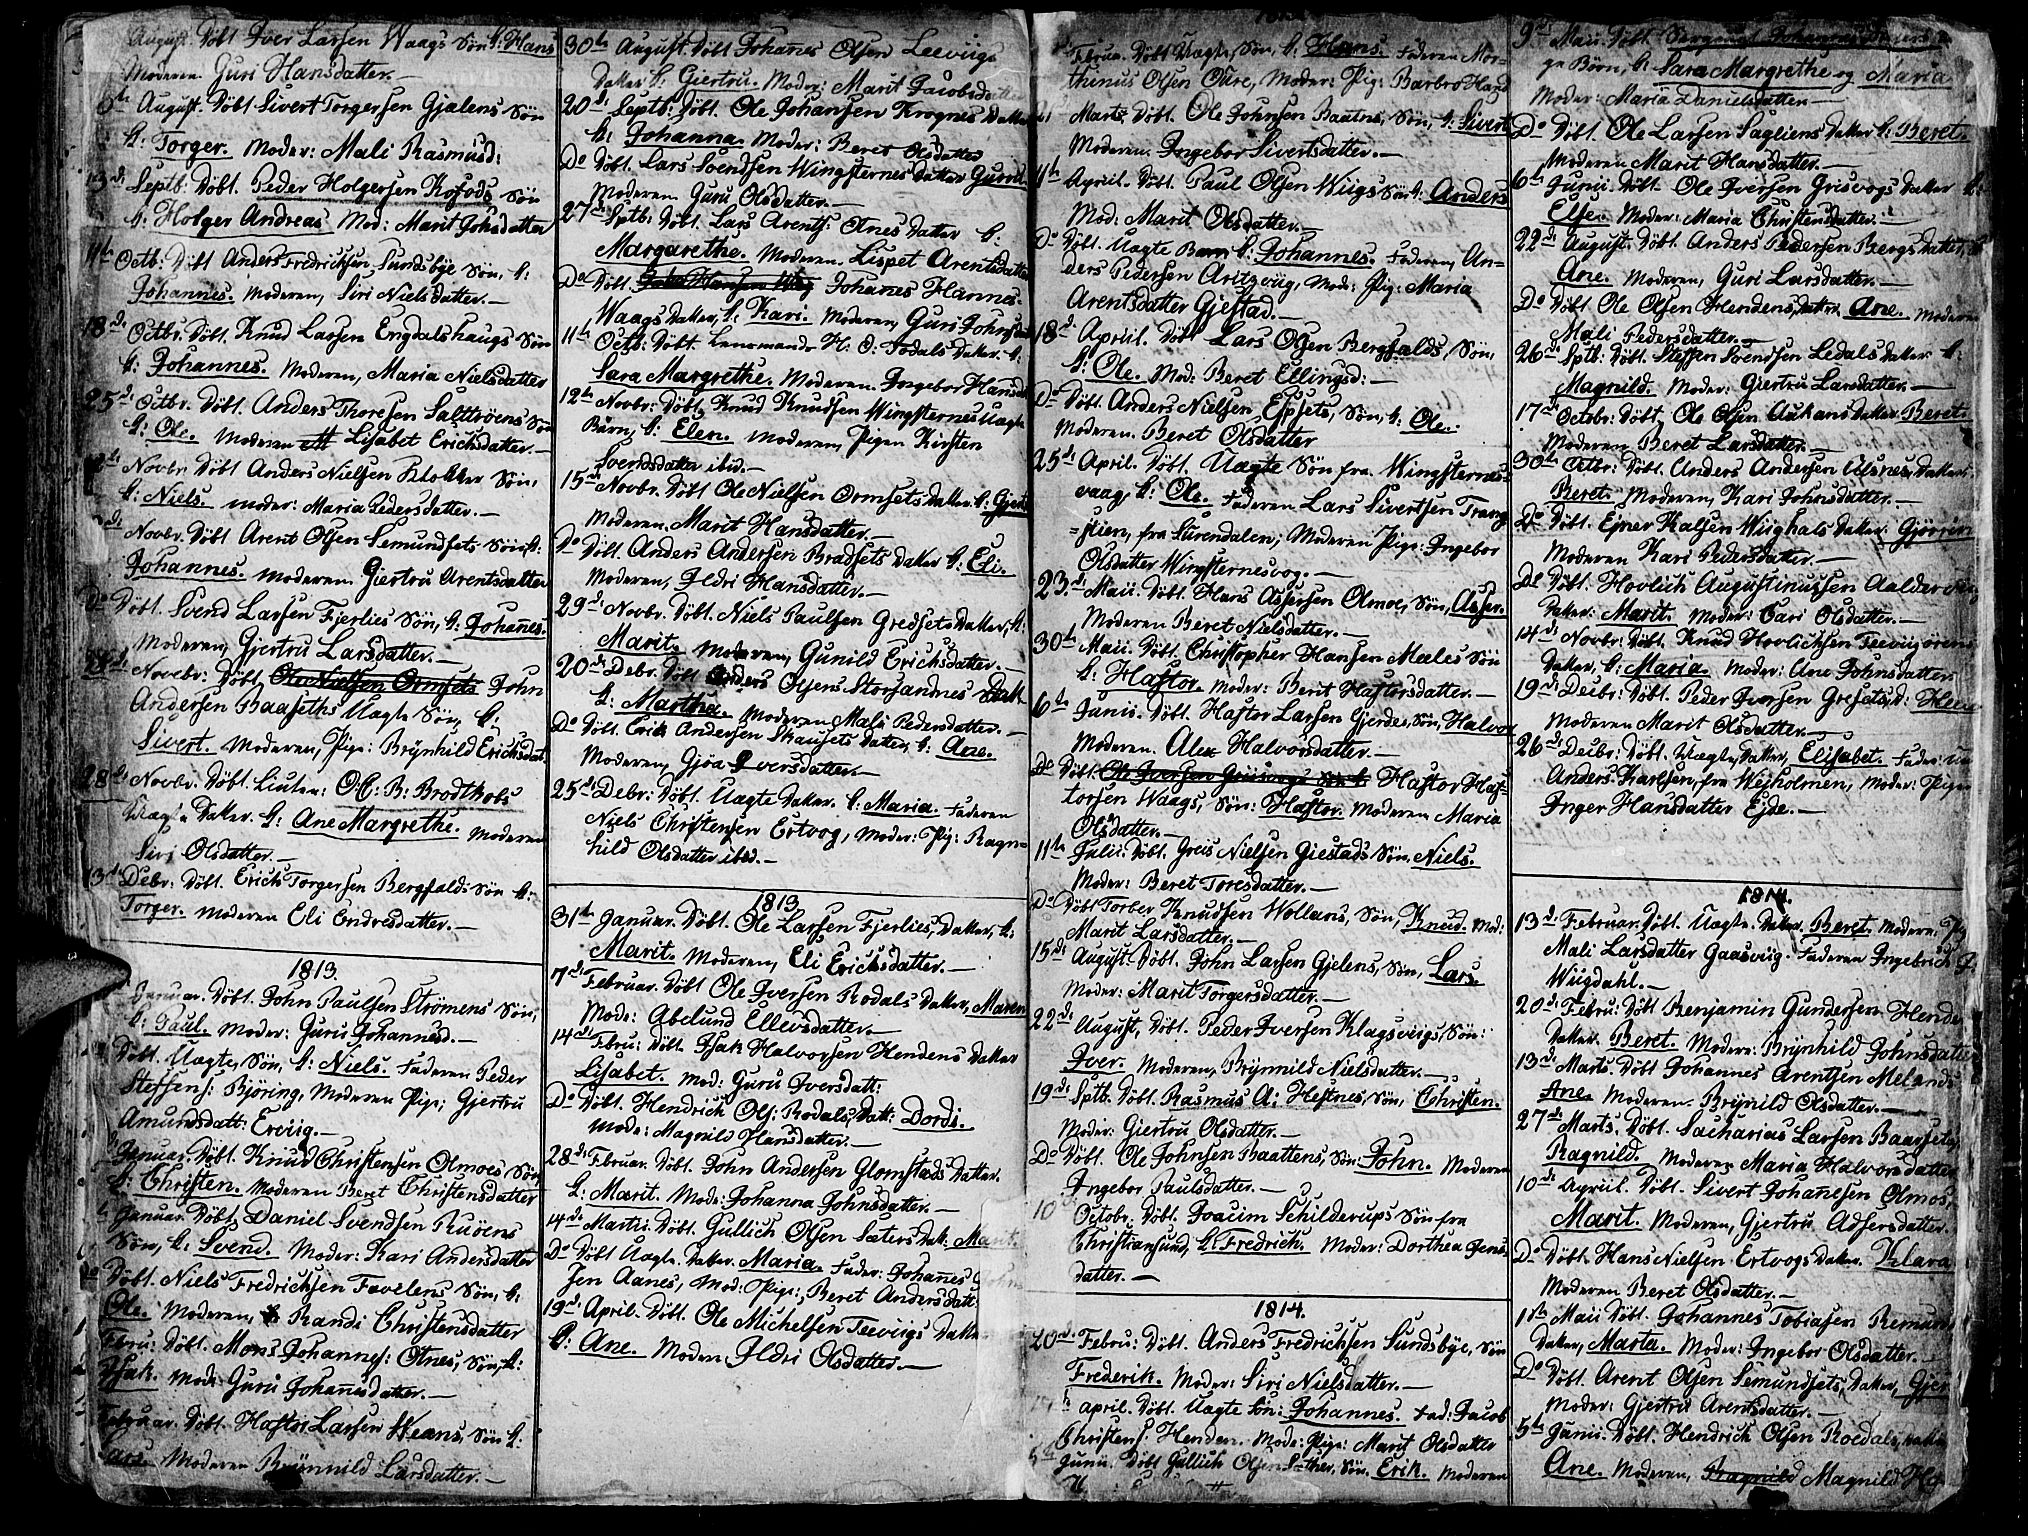 August. Döbt Iver Larsen Waags Sön k: Hans
Moderen. Guri Hansdatter.—
6th August. Döbt Sivert Torgersen Gjelens Sön
k: Torger. Moder: Mali Rasmusd:
13d: Septb: Döbt. Peder Holgersen Kofods Sön
k: Holger Andreas. Mod: Marit Johsdatter
11th Octb: Döbt Anders Fredrichsen Sundsbye Sön, k:
Johannes. Moderen, Siri Nielsdatter.—
18d: Octbr. Döbt. Knud Larsen Engdalshaugs Sön
k: Johannes. Moderen, Maria Nielsdatter
25d: Octbr. Döbt. Anders Thoresen Salttröens Sön
k: Ole. Moderen Lisabet Erichsdatter.—
Novbr. Döbt Anders Nielsen Klokker Sön,
k: Niels. Moder: Maria Pedersdatter.—
Novbr. Döbt Arent Olsen Semundsets Sön k:
Johannes. Moderen. Giertru Arentsdatter
Do Döbt. Svend Larsen Fjerlies Sön, k: Johañes.
Moderen, Gjertru Larsdatter.—
Novebr: Döbt. Ole Nielsen Ormsets John
Andersen Baaseths Uægte Sön, k:
Sivert. Moderen, Pige: Brÿnhild Erichsdat.
28d: Novbr. Döbt. Liuten: O: B: Brodtkobs
Uægte Datter. k: Ane Margrethe. Moderen
Siri Olsdatter.—
13d: Debr: Döbt. Erich Torgersen Bergfalds Sön k:
Torger. Moderen Eli Endresdatter.—
1813.
Januar. Döbt. John Paulsen Strömens Sön,
k: Paul. Moder: Guru Johannesd.—
Döbt. Uægte, Sön, k: Niels. Faderen Peder
Steffens: Björing, Moderen Pige; Gjertru
Amundsdatt: Ervüg.—
Januar. Döbt. Knud Christensen Olmoes Sön
k: Christen. Moderen Beret Christensdatter
Januar. Döbt. Daniel Svendsen Ruöens
Sön, k: Svend. Moder: Kari Andersdatter
Do Döbt. Niels Fredrichsen Fævelens Sön, k:
Ole. Moderen, Randi Christensdatter
Febru: Döbt. Mons Johannes: Otnes, Sön, k:
Isak. Mod: Guru Johanisdatter.—
Februar. Döbt. Hastor Larsen Sön k:
Lars. Moderen Brönnild Larsdatter.—
30th August. Döbt Johañes Olsen Leevügs
Datter k: Giertru. Moder: Marit Jacobsdatter
20d: Septb: Döbt. Ole Johansen Krognes Datter
k: Johanna. Moder: Beret Olsdatter
Do Döbt. Lars Svendsen Wingsternes Datter Gurid
Moderen Guru Olsdatter.—
27d: Sptb: Döbt. Lars Arents: Otnes Datter k:
Margarethe. Moderen. Lispet Arentsdatter
Do Döbt. Johañes Hannes-
Waags Datter, k: Kari. Moderen, Guri Johnsdatter
11th Octb: Döbt. Lensmands H: O: Todals Datter. k:
Sara Margrethe. Moderen. Ingebor Hansdat
12th Novbr: Döbt, Knud Knudsen Wingsternes Uægte
Barn, k: Elen. Moderen, Pigen Kirsten
Svendsdatter ibid.—
15d: Novbr. Döbt Ole Nielsen Ormsets Datter. k: Gjert
Moderen, Marit Hansdatter.—
Do Döbt. Anders Andersen Bradsets Datter k: Eli.
Moderen, Ildri Hansdatter.—
29d: Novbr. Döbt. Niels Paulsen Gredsets Datter, k:
Marit. Moderen, Gunild Erichsdatter.—
20de Debr. Döbt Anders Olsens Storsandnes Datt
k: Martha. Moderen Mali Pedersdatter.—
Do Döbt. Erik Andersen Skausets Datter, k: Ane.
Moderen, Gjöa Iversdatter.—
25d: Debr: Döbt. Uægte Datter. k: Maria. Faderen
Niels Christensen Ertvog, Moder: Pig: Ragn=
hild Olsdatter ibid.—
1813
31th Januar. Döbt. Ole Larsen Fjerlies, Datter, k:
Marit. Moderen, Eli Erichsdatter.—
7d: Februar. Döbt Ole Iversen Rodals Datter, Maren
Mod: Abelund Ellevsdatter.—
14d: Febru: Döbt. Isak Halvorsen Hendens Datter
Lisabet. Mod: Guru Iversdatt:
Do Döbt. Hendrich Ols: Rodals, Datt: Dordi.
Mod: Magnild Hansdatter.—
28d: Februar. Döbt. John Andersen Glomstads Datter.
k: Marit. Mod: Johanna Johnsdatter.—
14d: Martii. Döbt. Gullich Olsen Sæters Datt: Marit.
Do Döbt Uægte. Datter. Maria. Fader: Johañes
sen Aanes, Mod: Pige; Beret Andersdatt:
19d: April. Döbt. Ole Michelsen Teevügs Datter
k: Ane. Moder, Ildri Olsdatter.—
Februar. Döbt Uægte, Sön, k: Hans. Faderen Mor-
thinus Olsen Oure, Moder: Pig: Barbro Hans
Marts. Döbt. Ole Johnsen Baatnes, Sön, k: Sivert
Moderen. Ingebor Sivertsdatter.—
11th Apriil. Döbt. Paul Olsen Wiigs Sön k: Anders
Mod: Marit Olsdatter.—
Do Döbt. Uægte Barn k: Johannes. Faderen, An-
ders Pedersen Aritzvüg, Mod: Pig: Maria
Arentsdatter Gjestad.—
18d: Apriil. Döbt Lars Olsen Bergfalds, Sön,
k: Ole. Mod: Beret Ellingsd:—
Do Döbt. Anders Nielsen Espsets, Sön, k: Ole.
Moderen. Beret Olsdatter
25d: April. Döbt. Uægte Sön fra Wingsternes-
vaag, k: Ole. Faderen Lars Sivertsen Trang
=slien, fra Surendalen; Moderen Pige: Ingebor
Olsdatter Wingsternesvog.—
23d: Maii. Döbt. Hans Assersen Olmoe, Sön, Asser.
Moderen Beret Nielsdatter.—
30th Maii. Döbt. Christopher Hansen Mæles Sön
k: Hastor. Moder: Berit Hastorsdatter.—
6d: Junii. Döbt. Hastor Larsen Gjerdes, Sön, Halvor
Moderen. Alex Halvorsdatter.—
Do Döbt. Ole Iversen Griisvogs Sön k: Hastor Has-
torsen Waags, Sön: Hastor. Moderen Maria
Olsdatter.—
11th Julii: Döbt. Greis Nielsen Giestads Sön, Niels.
Moder: Beret Toresdatter.—
Do Döbt Torber Knudsen Wollans, Sön, Knud. Mod:
Marit Larsdatter.—
15d: August. Döbt. John Larsen Gjelens, Sön, Lars.
Moder: Marit Torgersdatter.—
22d: August, Döbt. Peder Iversen Klagsvigs, Sön:
Iver. Moderen, Brÿnnild Nielsdatter.—
19d: Sptb: Döbt. Rasmus A: Hestnes, Sön, Christen.
Moder: Giertru Olsdatter.—
Do Döbt. Ole Johnsen Baattens, Sön John. Moderen
Ingebor Paulsdatter.—
10 Octobr. Döbt. Joacim Schilderups Sön fra
Christiansund, k: Fredrich. Moder: Dorthea Jens
datter.—
1814.
20d: Febru: Döbt. Anders Fredrichsen Sundsbÿe, Sön
Frederik. Moder: Siri Nielsdatter.—
April. Döbt. Uægte Sön: Johannes. Fad: Jacob
Christens: Henden. Mod: Pige: Marit Olsdatter
5th Junii. Döbt Gullich Olsen Sæther, Sön. Erik. Moderen
9d: Maii. Döbt Sergeant
ge Börn, k: Sara Margrethe og Maria
Moder: Maria Danielsdatter.—
Do Döbt. Ole Larsen Sagliens Datter k: Beret.
Moderen Marit Hansdatter.—
6th Junii. Döbt. Ole Iversen Grisvogs Datter k:
Else. Moder: Maria Christensdatter.—
22d: August. Döbt. Anders Pedersen Bergs Datter, k
Ane. Moderen, Guri Larsdatter.—
Do Döbt Ole Olsen Hendens, Datter Ane. Moderen
Mali Pedersdatter.—
26d: Sptb: Döbt. Steffen Svendsen Ledals Datter k:
Magnild. Moder: Giertru Larsdatter.—
17d: Octobr: Döbt. Ole Olsen Aukans Datter Beret.
Moderen Beret Larsdatter.—
30th Octbr: Döbt. Anders Andersen Ulsnes, Datter.
Beret. Moderen, Kari Johnsdatter.—
Do Döbt. Ejner Kalsen Wiighals Datter Gjörrün
Moderen Kari Pedersdatter.—
Do Döbt. Hovlich Augustinussen Aalder
Datter: Marit. Moder: Cari Olsdatter.—
14d: Novbr: Döbt. Knud Hovlichsen Teevügörens
Datter, k: Maria. Moder: Ane Johnsdatter
19d: Decbr: Döbt. Peder Iversen Gresets, D:
Moderen Marit Olsdatter.—
26d: Decbr: Döbt. Uægte, Datter, Elisabet. Fader:
Anders Karlsen, fra Wejholmen, Moder: Pigen
Inger Hansdatter Ejde.—
1814.
13d: Februar. Döbt. Uægte. Datter. Beret. Moderen. Pig
Mali Larsdatter Gaasvüg. Faderen Ingebrich P.
Wügdahl.—
20d: Febru: Döbt Benjamin Gundersen Hende
Datter. Beret. Moderen: Brÿnhild Johnsdatter
13d: Marts. Döbt Johannes Arentsen Melands
Ane. Moderen. Brÿnild Olsdatter.—
27d: Marts. Döbt. Sacharias Larsen Baarsets,
Ragnild. Moderen Maria Halvorsdatter
10d: Apriil. Döbt. Sivert Johañesen Olmos,
Marit. Moderen, Gjertru Adsersdatter.
Do Döbt. Hans Nielsen Ertvogs Datter. Klara
Moderen Beret Olsdatter.—
11th Maii Döbt. Johannes Tobiasen Remuns
Datter, Marta. Moder: Ingebor Olsdatter.—
Do Döbt. Arent Olsen Semundsets, Datter, Gjer
Moder: Gjertru Arentsdatter.—
5th Junii. Döbt. Hendrich Olsen Roedals, Datter
Ane. Moderen, Ragnild Magnild H